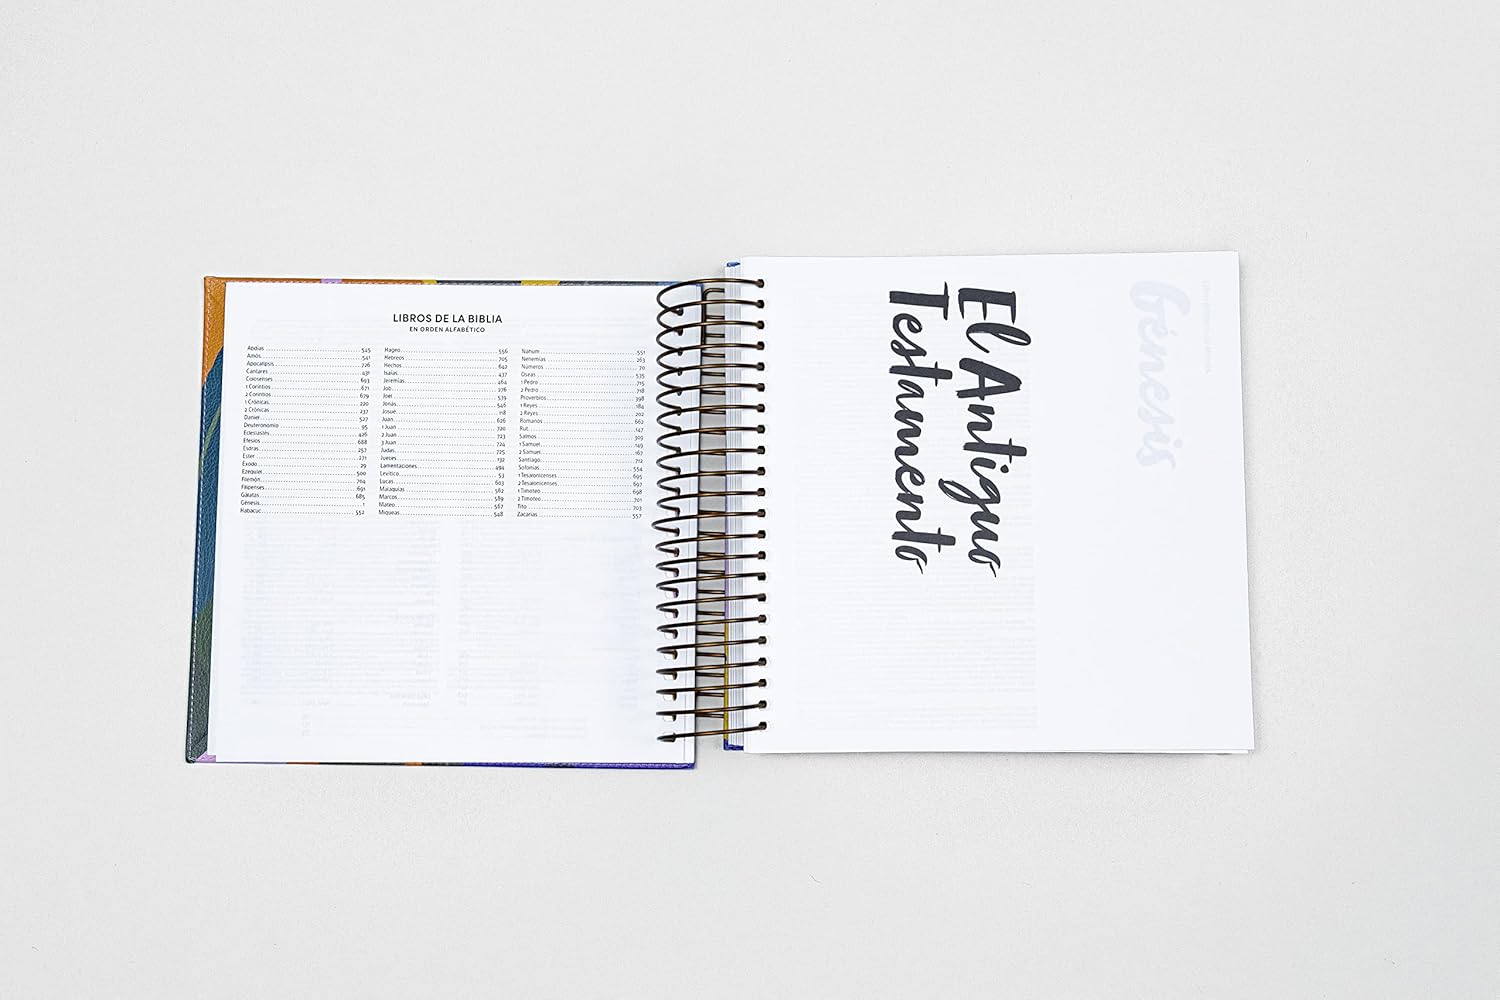 LIBROS DE LA BIBLIA
EN ORDEN ALFABÉTICO
Abdías 545
Amós 541
Apocalipsis 726
Cantares 431
Colosenses 693
1 Corintios 671
2 Corintios 679
1 Crónicas 220
2 Crónicas 237
Daniel 527
Deuteronomio 95
Eclesiastés 426
Efesios 688
Esdras 257
Ester 271
Éxodo 29
Ezequiel 500
Filemón 704
Filipenses 691
Gálatas 685
Génesis 1
Habacuc 552
Hageo 556
Hebreos 705
Hechos 642
Isaías 437
Jeremías 464
Job 276
Joel 539
Jonás 546
Josué 118
Juan 626
1 Juan 720
2 Juan 723
3 Juan 724
Judas 725
Jueces 132
Lamentaciones 494
Levítico 53
Lucas 603
Malaquías 562
Marcos 589
Mateo 567
Miqueas 548
Nahum 551
Nehemías 263
Números 70
Oseas 535
1 Pedro 715
2 Pedro 718
Proverbios 398
1 Reyes 184
2 Reyes 202
Romanos 662
Rut 147
Salmos 309
1 Samuel 149
2 Samuel 167
Santiago 712
Sofonías 554
1 Tesalonicenses 695
2 Tesalonicenses 697
1 Timoteo 698
2 Timoteo 701
Tito 703
Zacarías 557
El Antiguo
Testamento
Génesis